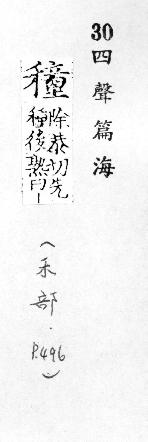 30 四聲篇海
穜
除恭切先
種後熟曰丨
(禾部·P.496)